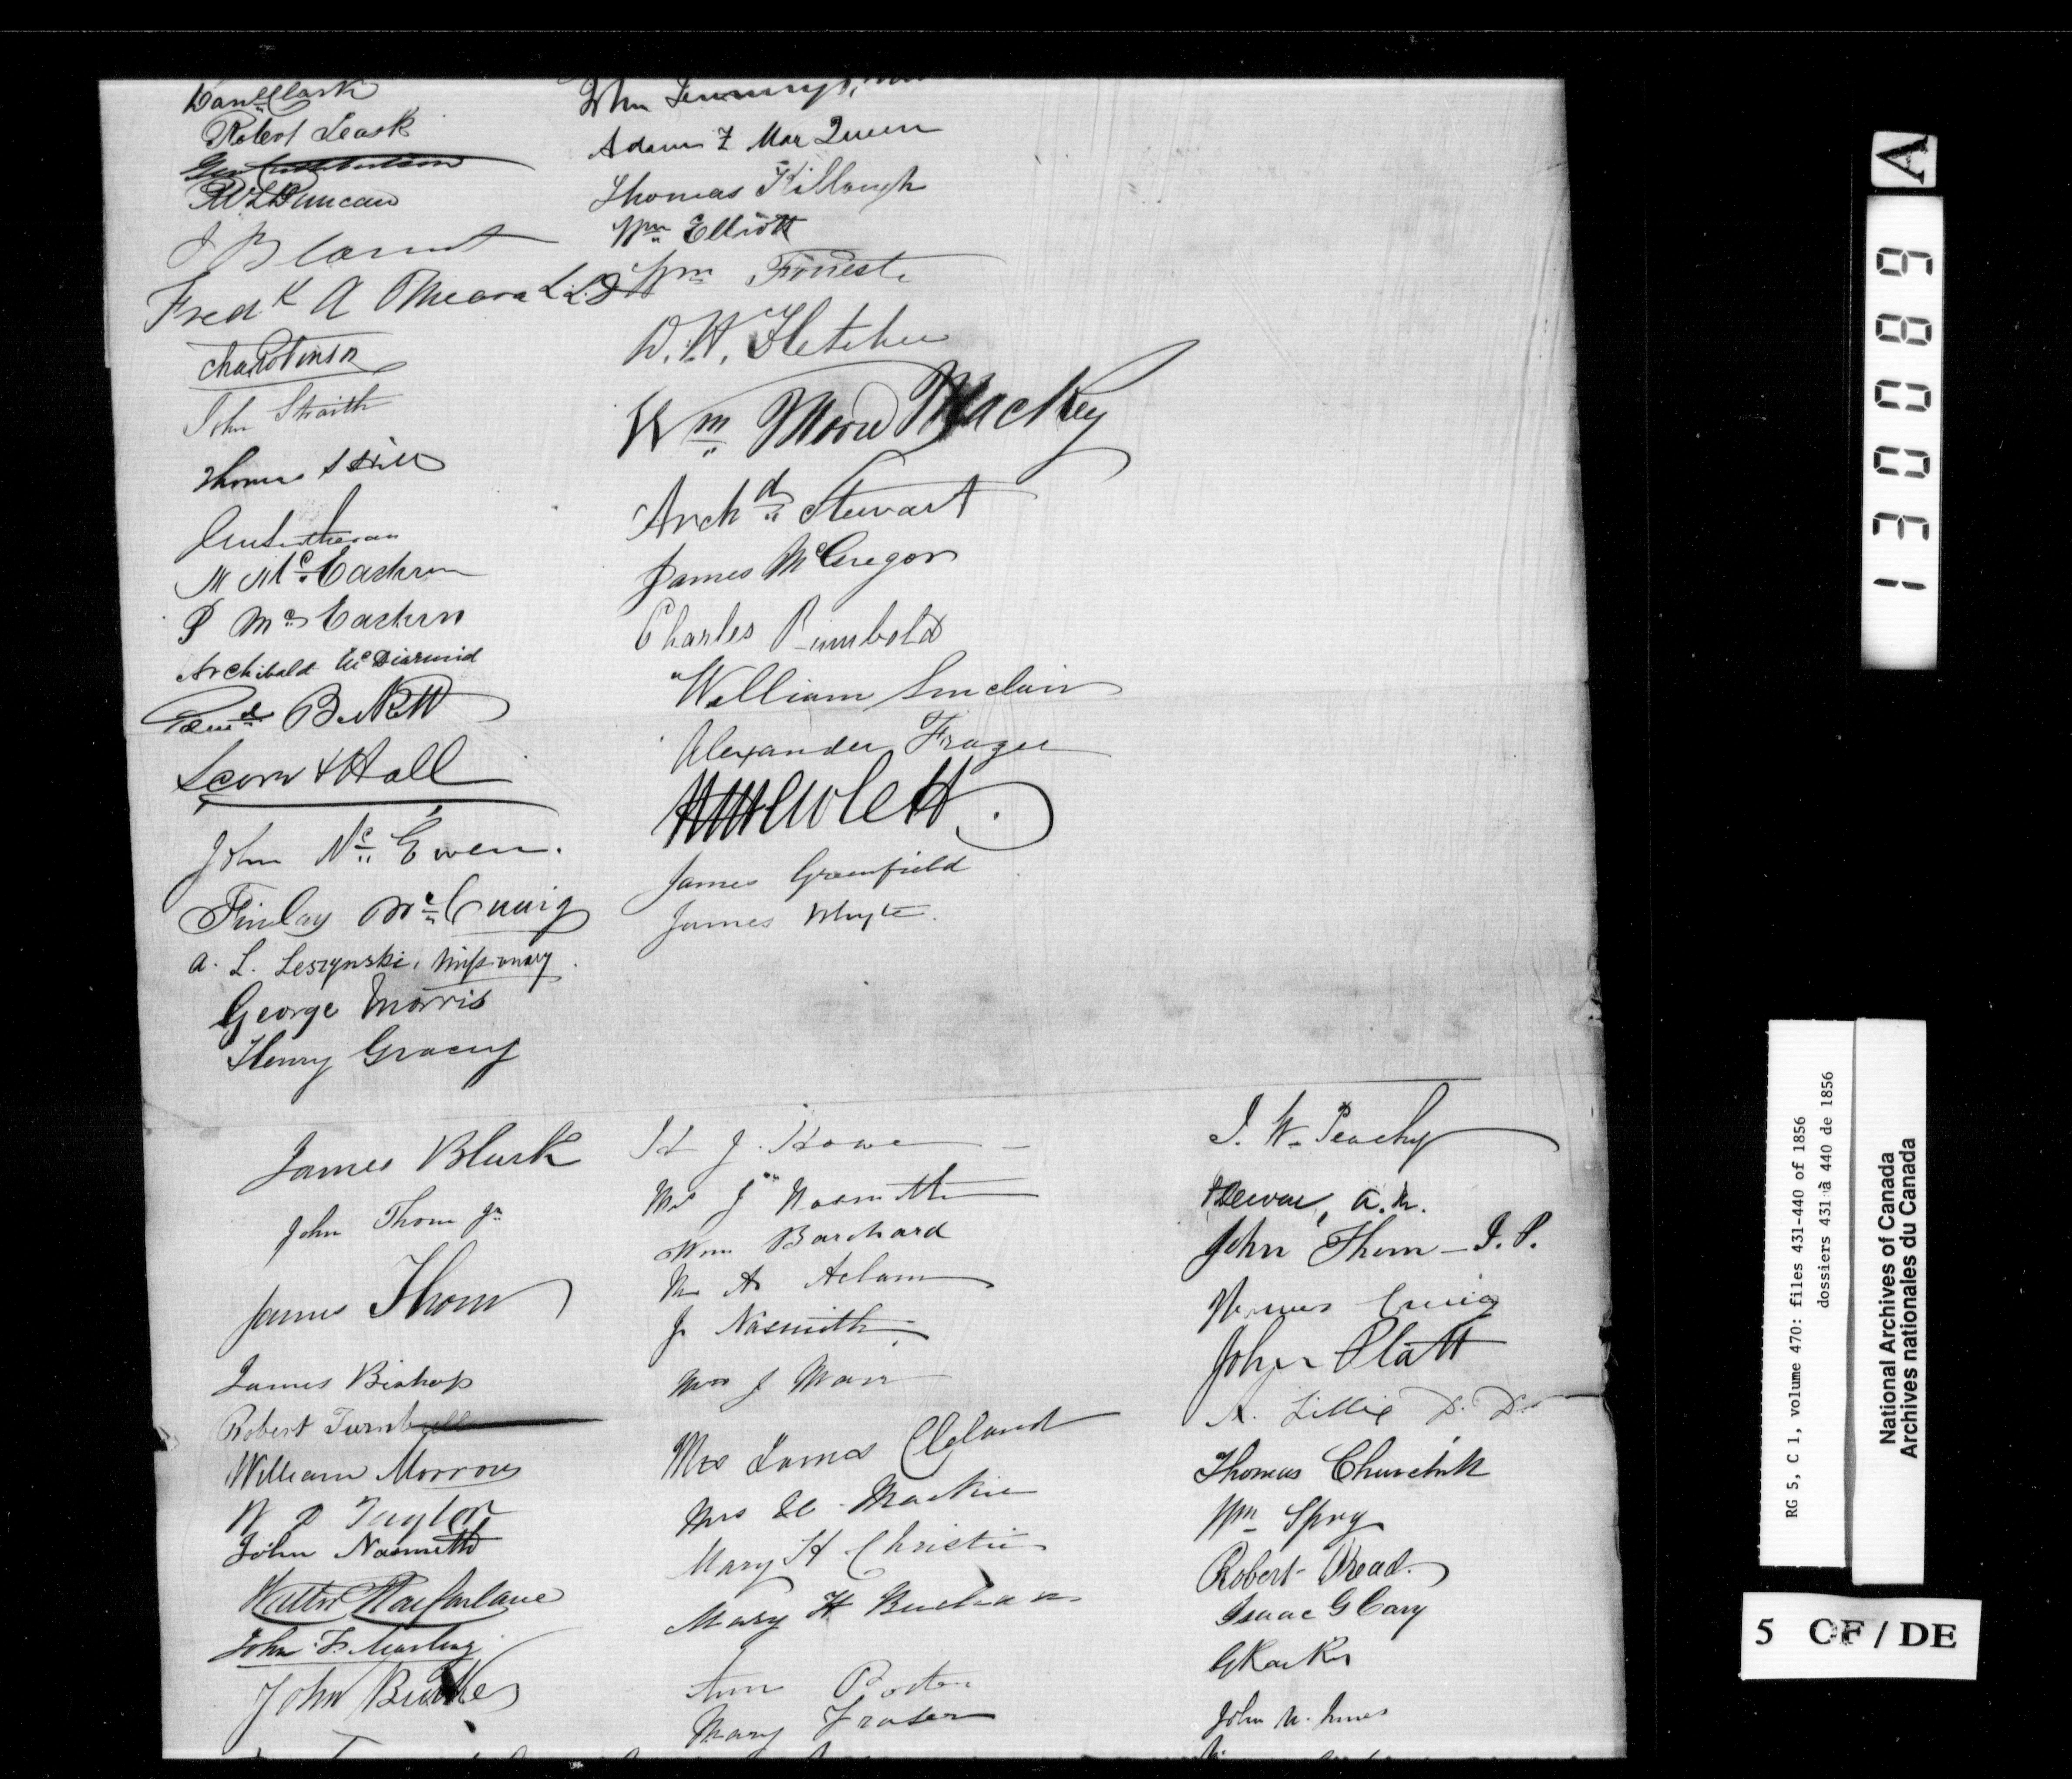 Danl Clark
Robert Leask
Geo
R W L Duncan
J B
Fredk A O'Meara LL.D
Chas Robinson
John Straith
Thomas S Hill
M McEachern
P McEachern
Archibald McDiarmid
Beckett
& Hall
John McEwen.
Finlay McCuaig
A. L. Leszynski, Missionary.
George Morris
Henry Gracey
John Jennings,
Adam F MacQueen
Thomas Killough
Wm Elliott
Wm Forrest
D. H. Fletcher
Wm Mackey
Archd Stewart
James McGregor
Charles Rumbold
William Sinclair
Alexander Frazer
Hewlett.
James Greenfield
James Whyte.
James Blush
John Thom Jr
James Thom
James Bishop
Robert Turnbull
William Morrow
W D Taylor
John Nasmith
Walter Macfarlane
John F. Marling
John Burke
H J. Howe
Mrs J Nasmith
Wm Barchard
M A Adam
J Nasmith
Mrs J Marr
Mrs James Cleland
Mrs Mackie
Mary H Christie
Mary H Buchanan
Ann Porter
Mary Fraser
J. W. Peachy
A.M.
John Thom - J.P.
Craig
John Platt
A. Lillie D.D.
Thomas Churchill
Wm Spry
Robert Read.
Isaac G Cary
John W. Innes
A
130089
RG 5, C 1, volume 470: files 431-440 of 1856
dossiers 431 à 440 de 1856
National Archives of Canada
Archives nationales du Canada
5 OF / DE